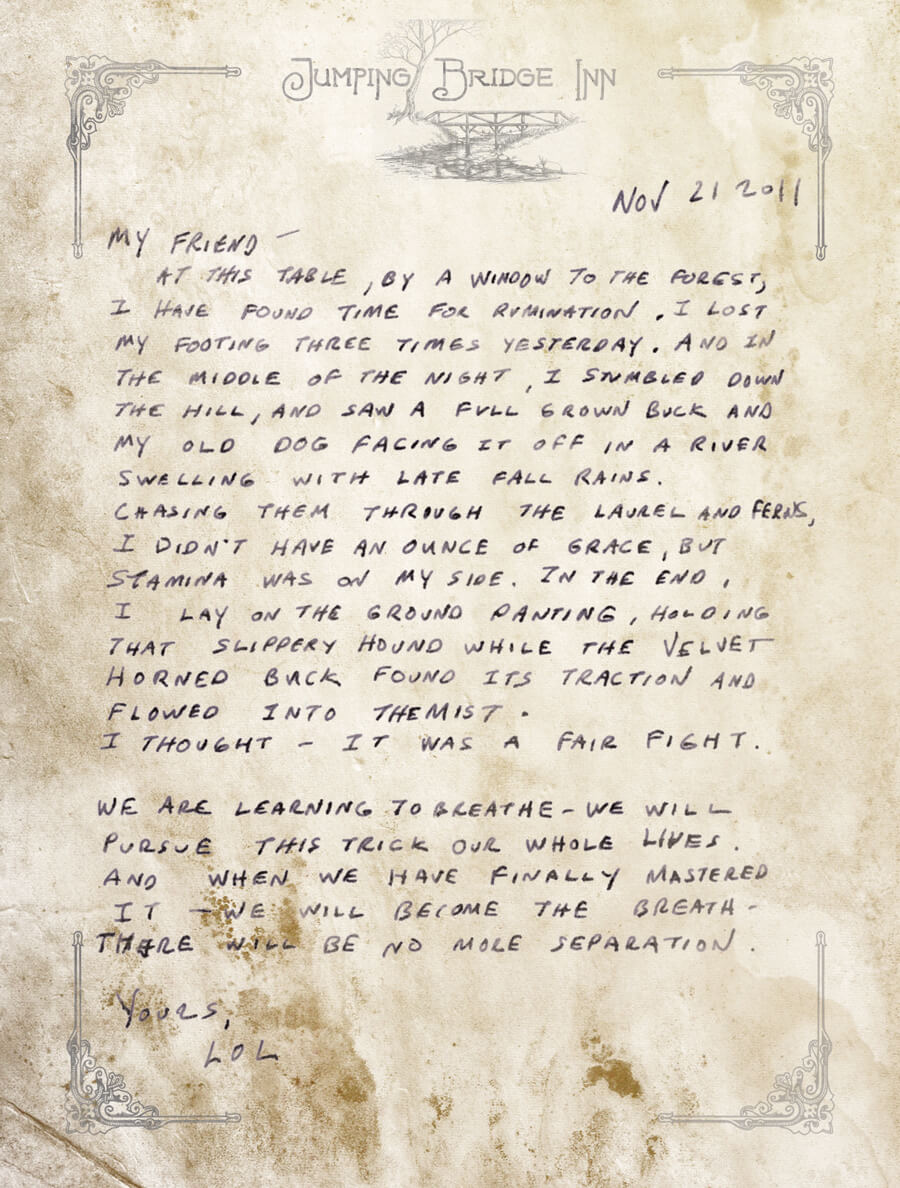 JUMPING BRIDGE INN
NOV 21 2011
MY FRIEND —
AT THIS TABLE, BY A WINDOW TO THE FOREST,
I HAVE FOUND TIME FOR RUMINATION. I LOST
MY FOOTING THREE TIMES YESTERDAY. AND IN
THE MIDDLE OF THE NIGHT, I STUMBLED DOWN
THE HILL, AND SAW A FULL GROWN BUCK AND
MY OLD DOG FACING IT OFF IN A RIVER
SWELLING WITH LATE FALL RAINS.
CHASING THEM THROUGH THE LAUREL AND FERNS,
I DIDN'T HAVE AN OUNCE OF GRACE, BUT
STAMINA WAS ON MY SIDE. IN THE END,
I LAY ON THE GROUND PANTING, HOLDING
THAT SLIPPERY HOUND WHILE THE VELVET
HORNED BUCK FOUND ITS TRACTION AND
FLOWED INTO THE MIST.
I THOUGHT – IT WAS A FAIR FIGHT.
WE ARE LEARNING TO BREATHE – WE WILL
PURSUE THIS TRICK OUR WHOLE LIVES.
AND WHEN WE HAVE FINALLY MASTERED
IT – WE WILL BECOME THE BREATH –
THERE WILL BE NO MORE SEPARATION.
YOURS,
LOL